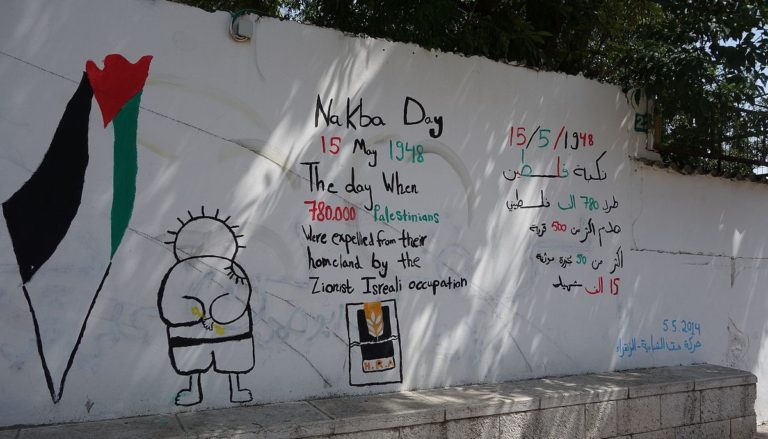 Nakba Day
15 May 1948
The day When
780.000 Palestinians
Were expelled from their
homeland by the
Zionist Isreali occupation
N.R.A
15/5/1948
نكبة فلسطين
طرد 780 الف فلسطيني
هدم اكثر من 500 قرية
اكثر من 50
15 الف شهيد
5.5.2014
حركة الشبابية - الزهراء